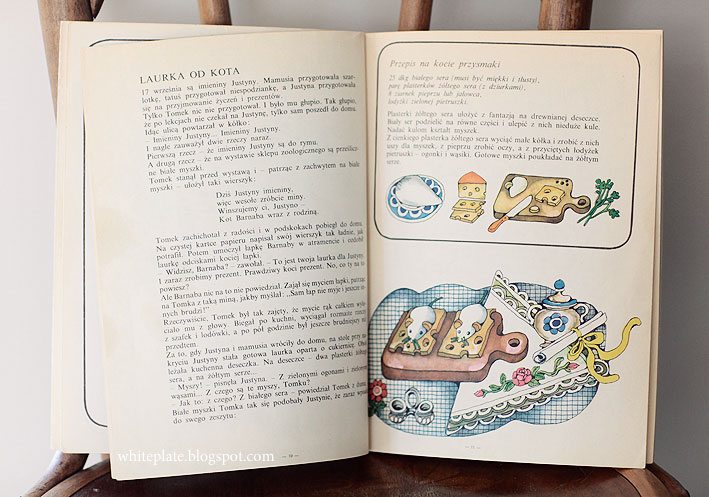 LAURKA OD KOTA
17 września są imieniny Justyny. Mamusia przygotowała szar-
lotkę, tatuś przygotował niespodziankę, a Justyna przygotowała
się na przyjmowanie życzeń i prezentów.
Tylko Tomek nic nie przygotował. I było mu głupio. Tak głupio,
że po lekcjach nie czekał na Justynę, tylko sam poszedł do domu.
Idąc ulicą powtarzał w kółko:
– Imieniny Justyny... Imieniny Justyny.
I nagle zauważył dwie rzeczy naraz.
Pierwszą rzecz – że imieniny Justyny są do rymu.
A drugą rzecz – że na wystawie sklepu zoologicznego są prześlicz-
ne białe myszki.
Tomek stanął przed wystawą i – patrząc z zachwytem na białe
myszki – ułożył taki wierszyk:
Dziś Justyny imieniny,
więc wesołe zróbcie miny.
Winszujemy ci, Justyno –
Kot Barnaba wraz z rodziną.
Tomek zachichotał z radości i w podskokach pobiegł do domu.
Na czystej kartce papieru napisał swój wierszyk tak ładnie, jak
potrafił. Potem umoczył łapkę Barnaby w atramencie i ozdobił
laurkę odciskami kociej łapki.
– Widzisz, Barnaba? – zawołał. – To jest twoja laurka dla Justyny.
I zaraz zrobimy prezent. Prawdziwy koci prezent. No, co ty na to
powiesz?
Ale Barnaba nic na to nie powiedział. Zajął się myciem łapki, patrząc
na Tomka z taką miną, jakby myślał: „Sam łap nie myje i jeszcze in-
nych brudzi!”
Rzeczywiście, Tomek był tak zajęty, że mycie rąk całkiem wyle-
ciało mu z głowy. Biegał po kuchni, wyciągał rozmaite rzeczy
z szafek i lodówki, a po pół godzinie był jeszcze brudniejszy niż
przedtem.
Za to, gdy Justyna i mamusia wróciły do domu, na stole przy na-
kryciu Justyny stała gotowa laurka oparta o cukiernicę. Obok
leżała kuchenna deseczka. Na deseczce – dwa plasterki żółtego
sera, a na żółtym serze...
– Myszy! – pisnęła Justyna. – Z zielonymi ogonami i zielonymi
wąsami... Z czego są te myszy, Tomku?
– Jak to: z czego? Z białego sera – powiedział Tomek z dumą.
Białe myszki Tomka tak się podobały Justynie, że zaraz wpisała
do swego zeszytu:
— 10 —
whiteplate.blogspot.com
Przepis na kocie przysmaki
25 dkg białego sera (musi być miękki i tłusty),
parę plasterków żółtego sera (z dziurkami),
4 ziarnek pieprzu lub jałowca,
łodyżki zielonej pietruszki.
Plasterki żółtego sera ułożyć z fantazją na drewnianej deseczce.
Biały ser podzielić na równe części i ulepić z nich nieduże kule.
Nadać kulom kształt myszek.
Z cienkiego plasterka żółtego sera wyciąć małe kółka i zrobić z nich
uszy dla myszek, z pieprzu zrobić oczy, a z przyciętych łodyżek
pietruszki – ogonki i wąsiki. Gotowe myszki poukładać na żółtym
serze.
— 11 —